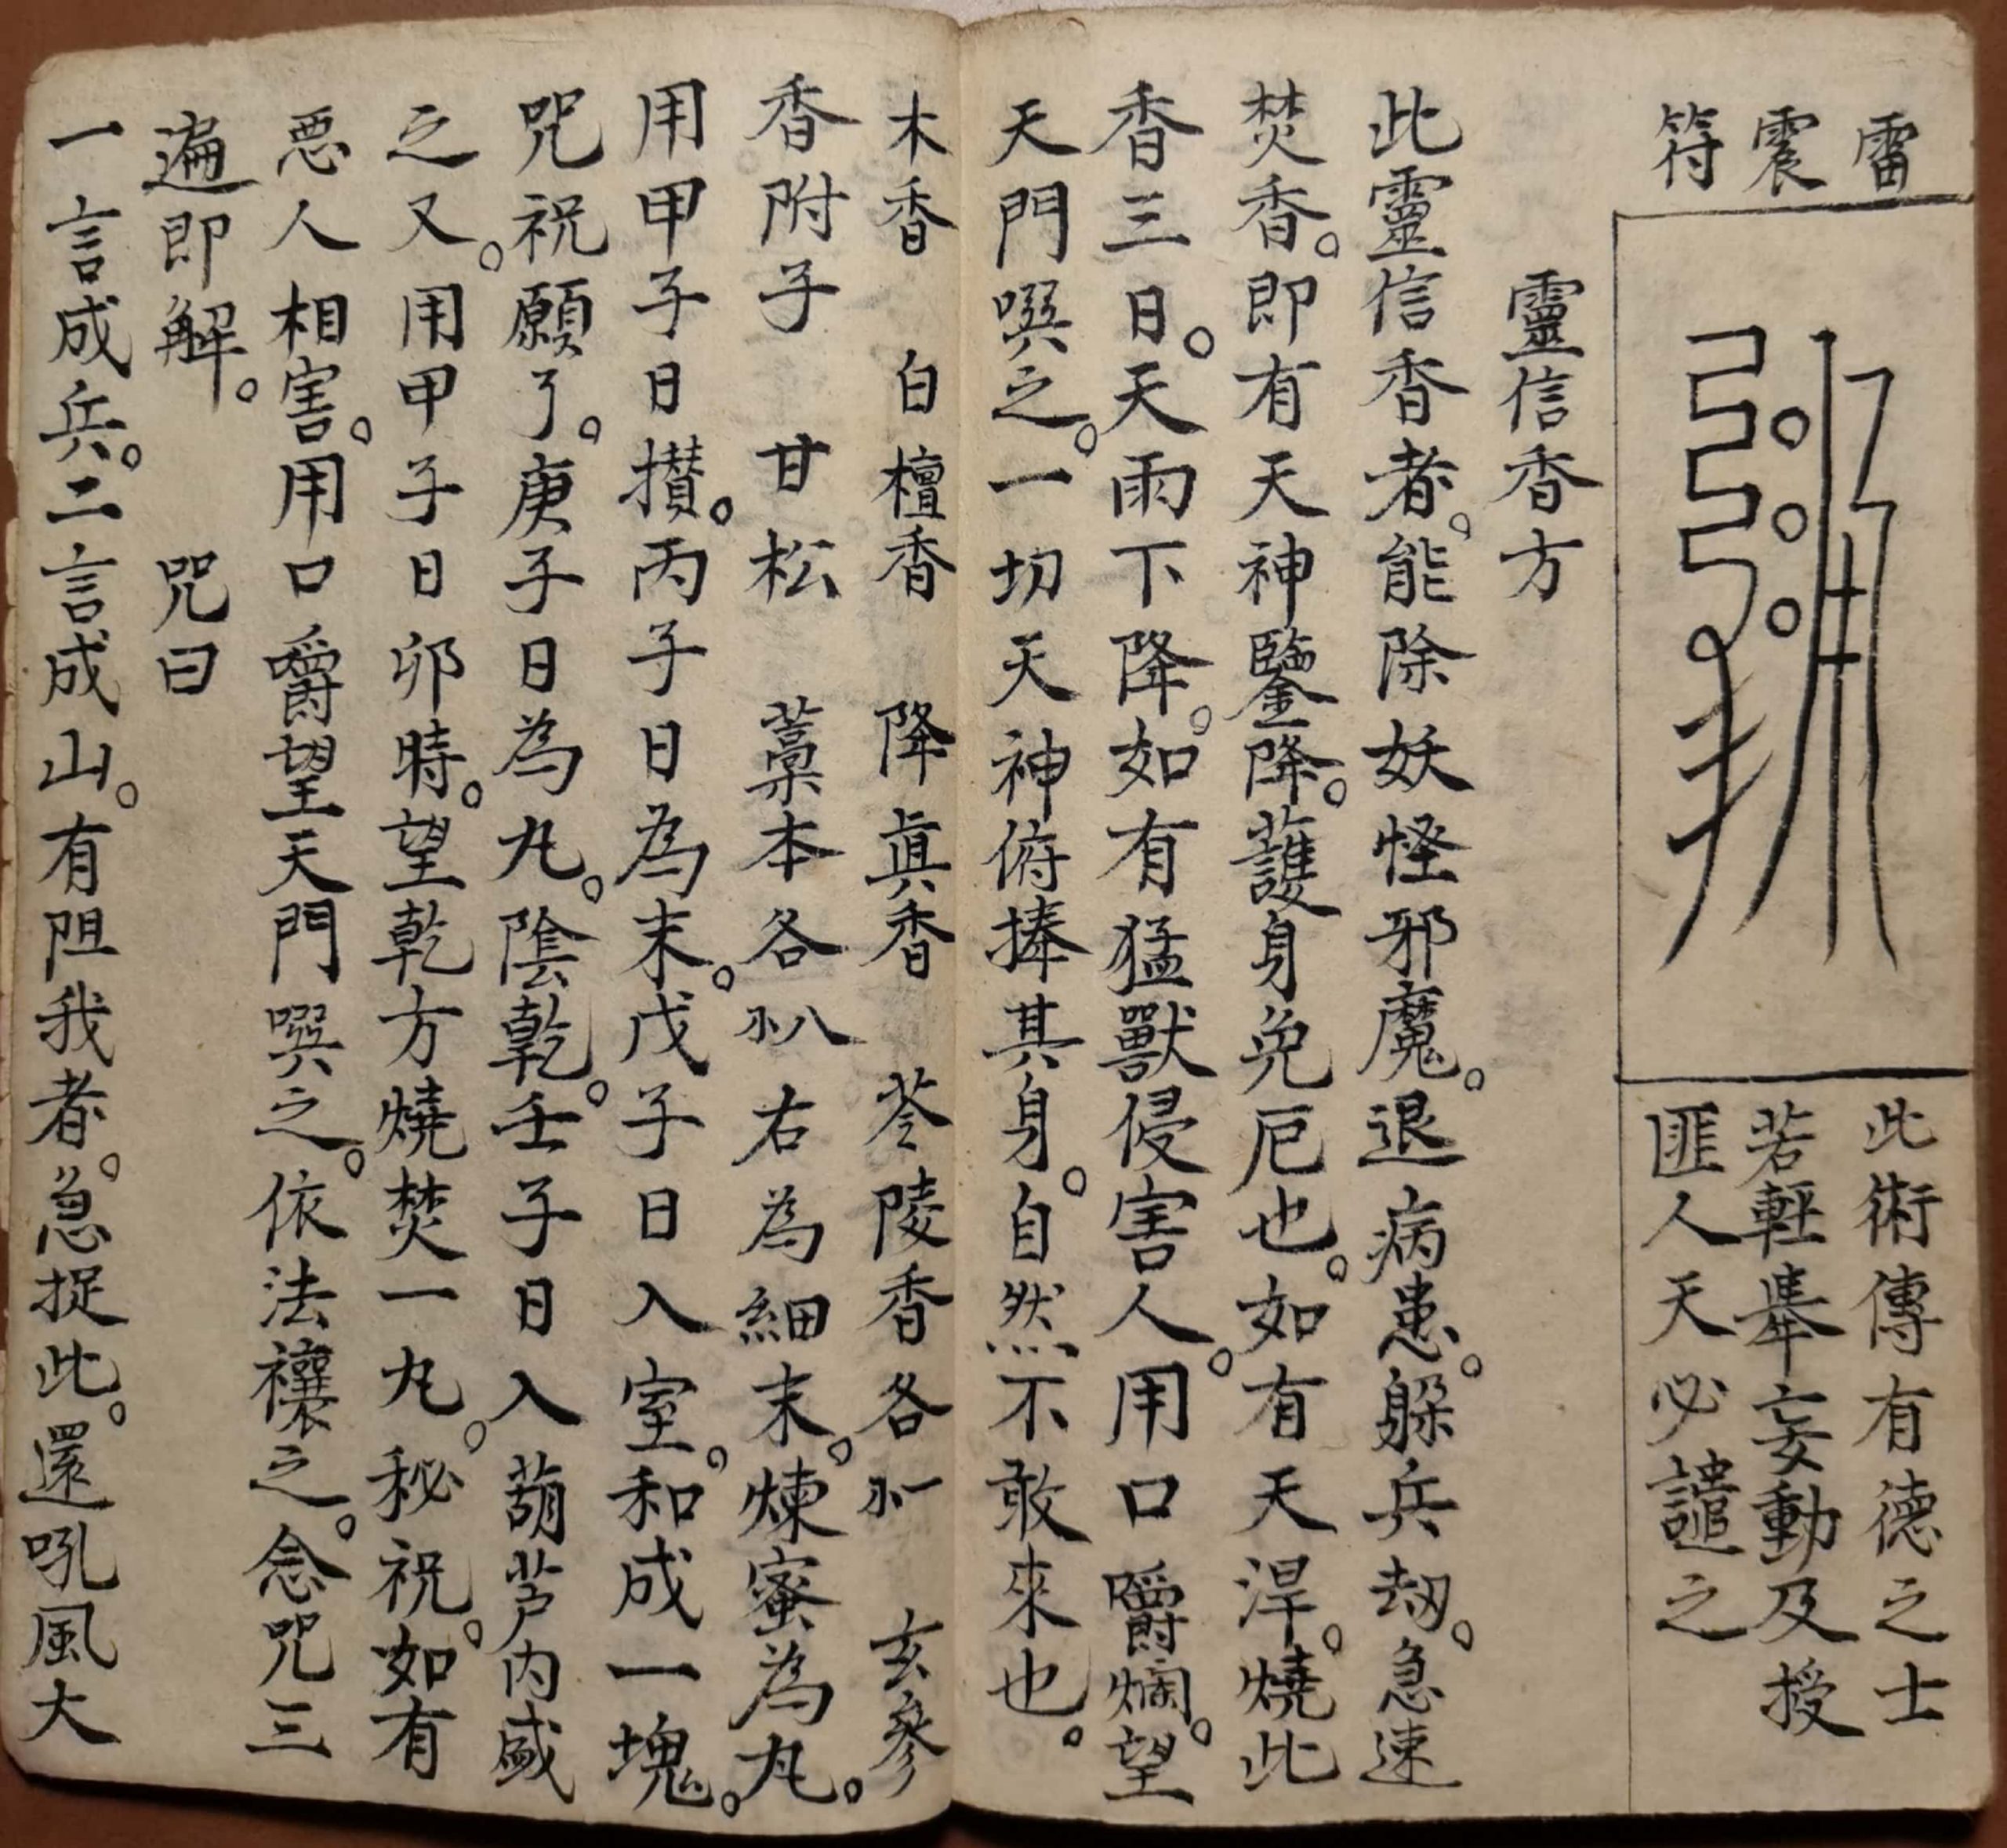 雷
震
符
此術傳有德之士
若輕舉妄動及授
匪人天必譴之
靈信香方
此靈信香者。能除妖怪邪魔。退病患。躲兵劫。急速
焚香。即有天神鑒降。護身免厄也。如有天滜。燒此
香三日。天雨下降。如有猛獸侵害人。用口嚼爛。望
天門噀之。一切天神俯捧其身。自然不敢來也。
木香 白檀香 降眞香 苓陵香各 玄參
香附子 甘松 藁本各 右為細末。煉蜜為丸。
用甲子日攅。丙子日為末。戊子日入室。和成一塊。
咒祝願了。庚子日為丸。陰乾。壬子日入葫芦内盛
之又。用甲子日卯時。望乾方燒焚一丸。秘祝。如有
惡人相害。用口嚼望天門噀之。依法禳之。念咒三
遍即解。 咒曰
一言成兵。二言成山。有阻我者。急捉此。還吼風大